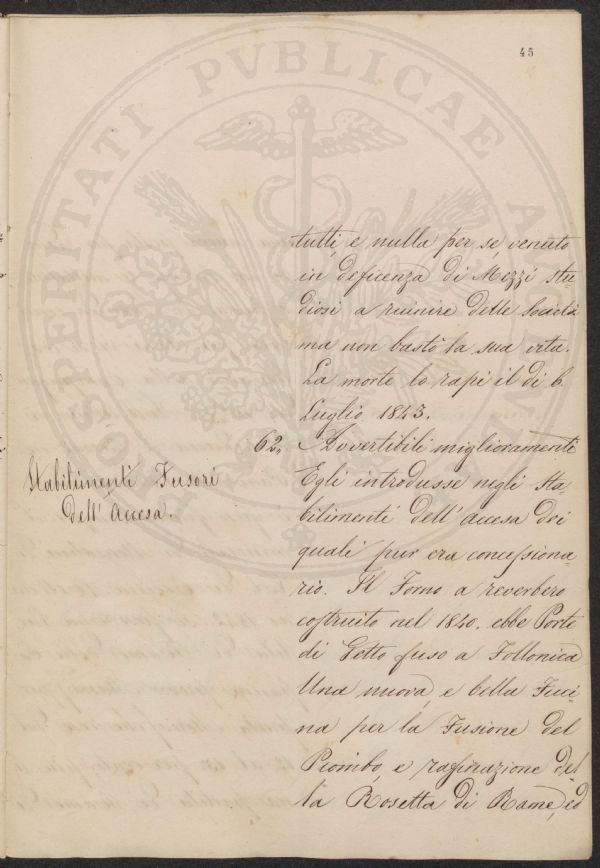 45
PROSPERITATI PVBLICAE AVGENDAE
tutti, e nulla per se, venuto
in deficenza di Mezzi stu-
diosi a reinire delle Società
ma non bastò la sua vita.
La morte lo rapì il dì 6
Luglio 1843.
62.. Avvertibili miglioramenti
Stabilimenti Fusori
dell' Accesa.
Egli introdusse negli Sta-
bilimenti dell' accesa dei
quali pur era concessiona-
rio. Il Forno a reverbero
costruito nel 1840. ebbe Porte
di Getto fuso a Follonica
Una nuova, e bella Fuci-
na per la Fusione del
Piombo, e rafinazione del-
la Rosetta di Rame, ed